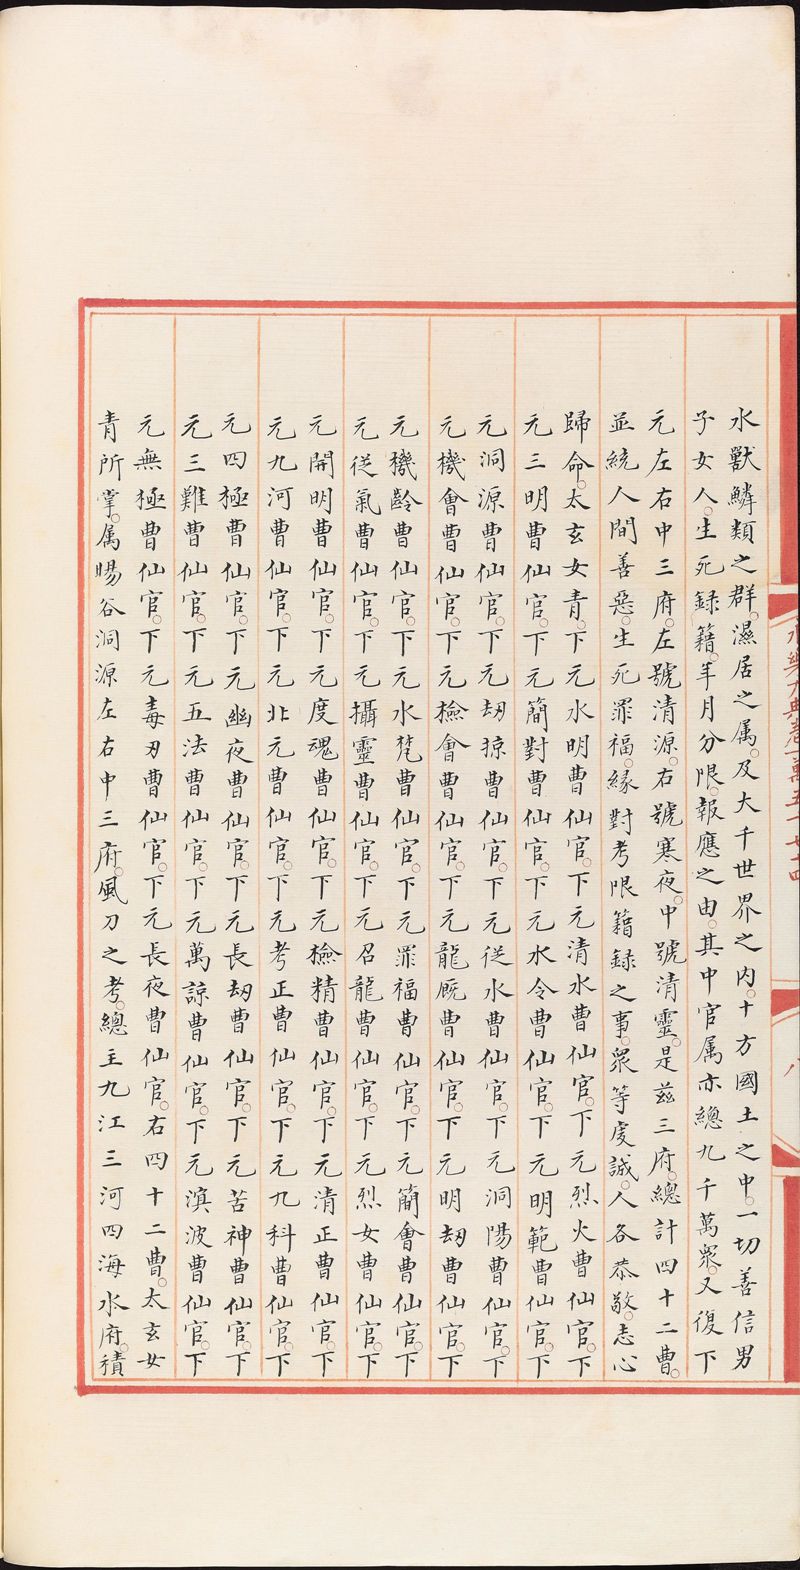 水獸鱗類之群濕居之属及大千世界之内十方國土之中一切善信男
子女人生死録籍年月分限報應之由其中官属亦總九千萬衆又復下
元左右中三府左號清源右號寒夜中號清靈是兹三府總計四十二曹
並統人間善惡生死罪福緣對考限籍録之事衆等虔誠人各恭敬志心
歸命太玄女青下元水明曹仙官下元清水曹仙官下元烈火曹仙官下
元三明曹仙官下元簡對曹仙官下元水令曹仙官下元明範曹仙官下
元洞源曹仙官下元刼掠曹仙官下元從水曹仙官下元洞陽曹仙官下
元機會曹仙官下元檢會曹仙官下元龍厩曹仙官下元明刼曹仙官下
元機齡曹仙官下元水梵曹仙官下元罪福曹仙官下元簡會曹仙官下
元從氣曹仙官下元攝靈曹仙官下元召龍曹仙官下元烈女曹仙官下
元開明曹仙官下元度魂曹仙官下元檢精曹仙官下元清正曹仙官下
元九河曹仙官下元北元曹仙官下元考正曹仙官下元九科曹仙官下
元四極曹仙官下元幽夜曹仙官下元長刼曹仙官下元苦神曹仙官下
元三難曹仙官下元五法曹仙官下元萬諒曹仙官下元溟波曹仙官下
元無極曹仙官下元毒刃曹仙官下元長夜曹仙官右四十二曹太玄女
青所掌属暘谷洞源左右中三府風刀之考總主九江三河四海水府積